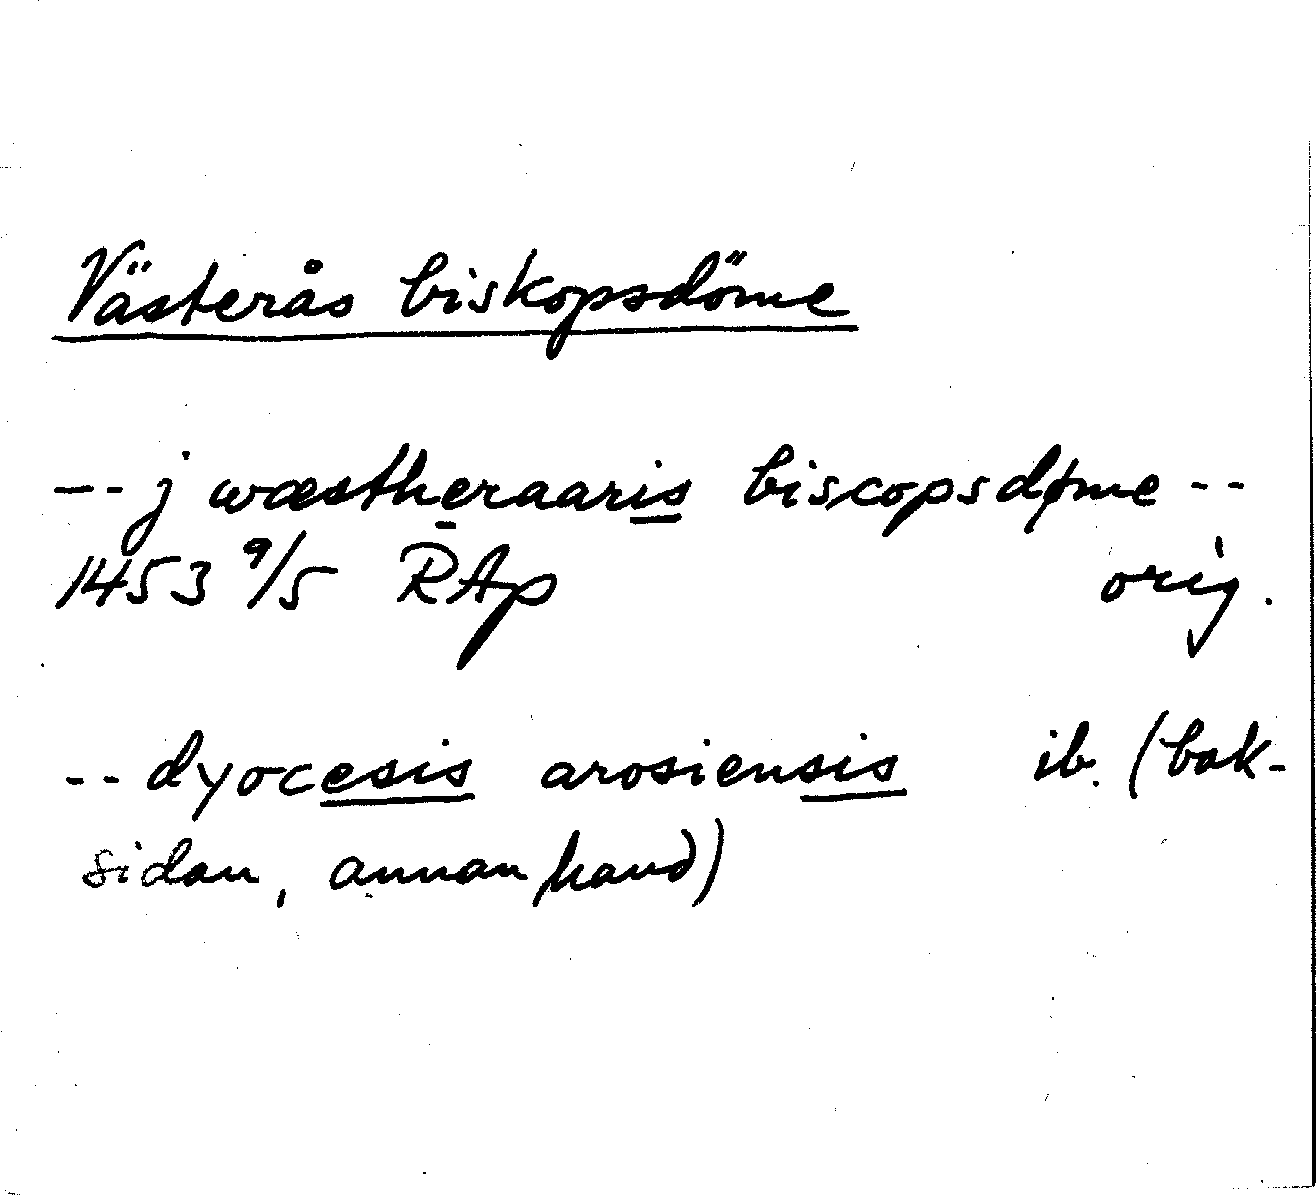 Västerås biskopsdöme
-- j wæstheraaris biscopsdøme --
1453 9/5 RAp orig.
-- dyocesis arosiensis ib. (bak-
sidan, annan hand)